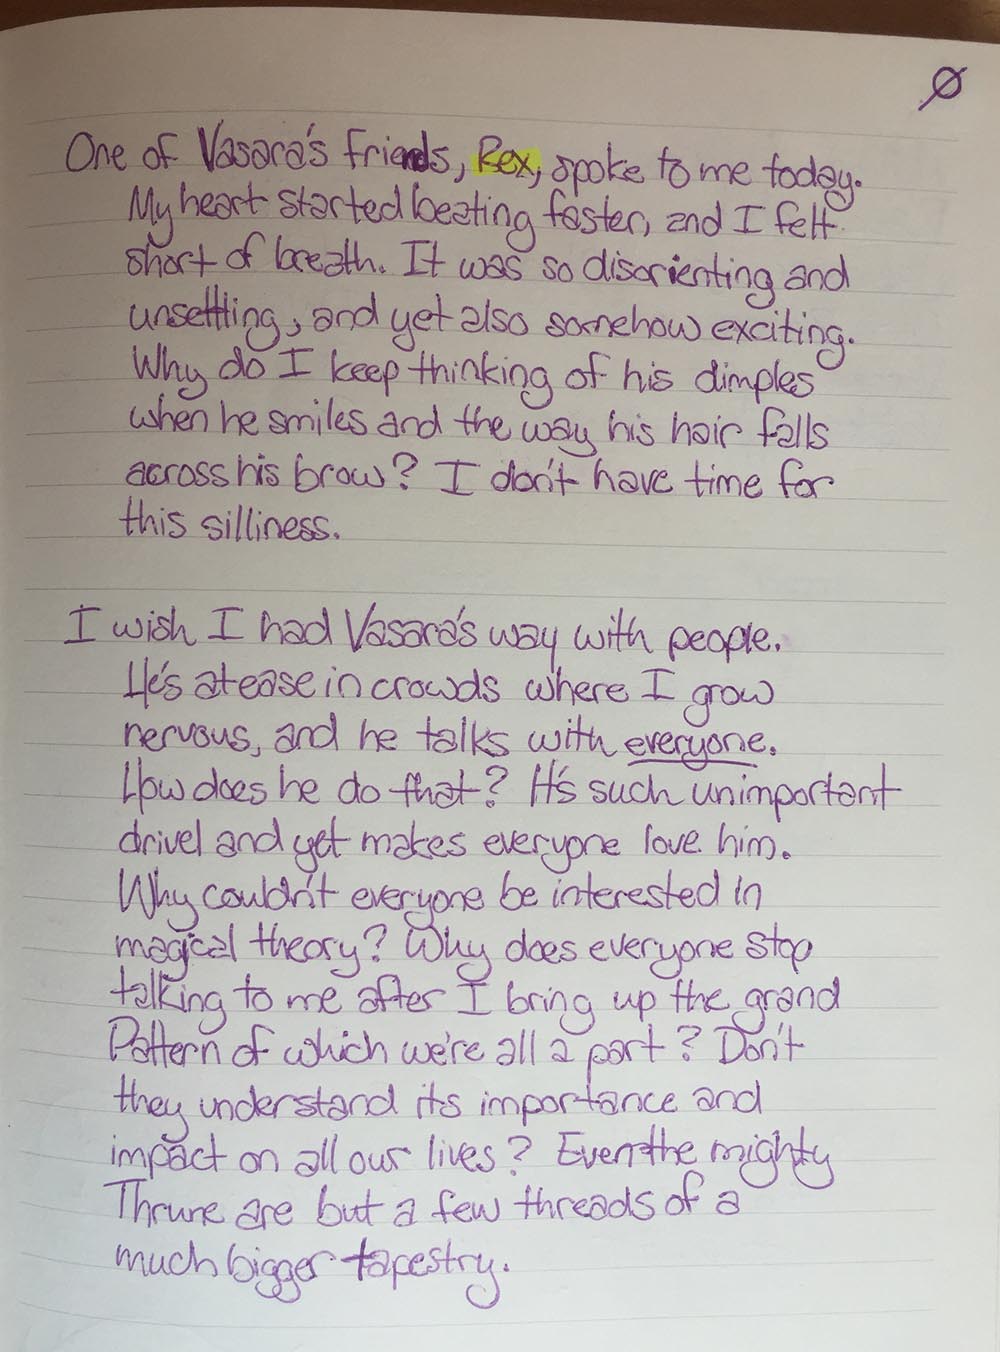 Ø
One of Vasara's friends, Rex, spoke to me today.
My heart started beating faster, and I felt
short of breath. It was so disorienting and
unsettling, and yet also somehow exciting.
Why do I keep thinking of his dimples
when he smiles and the way his hair falls
across his brow? I don't have time for
this silliness.
I wish I had Vasara's way with people.
He's at ease in crowds where I grow
nervous, and he talks with everyone.
How does he do that? It's such unimportant
drivel and yet makes everyone love him.
Why couldn't everyone be interested in
magical theory? Why does everyone stop
talking to me after I bring up the grand
Pattern of which we're all a part? Don't
they understand its importance and
impact on all our lives? Even the mighty
Thrune are but a few threads of a
much bigger tapestry.